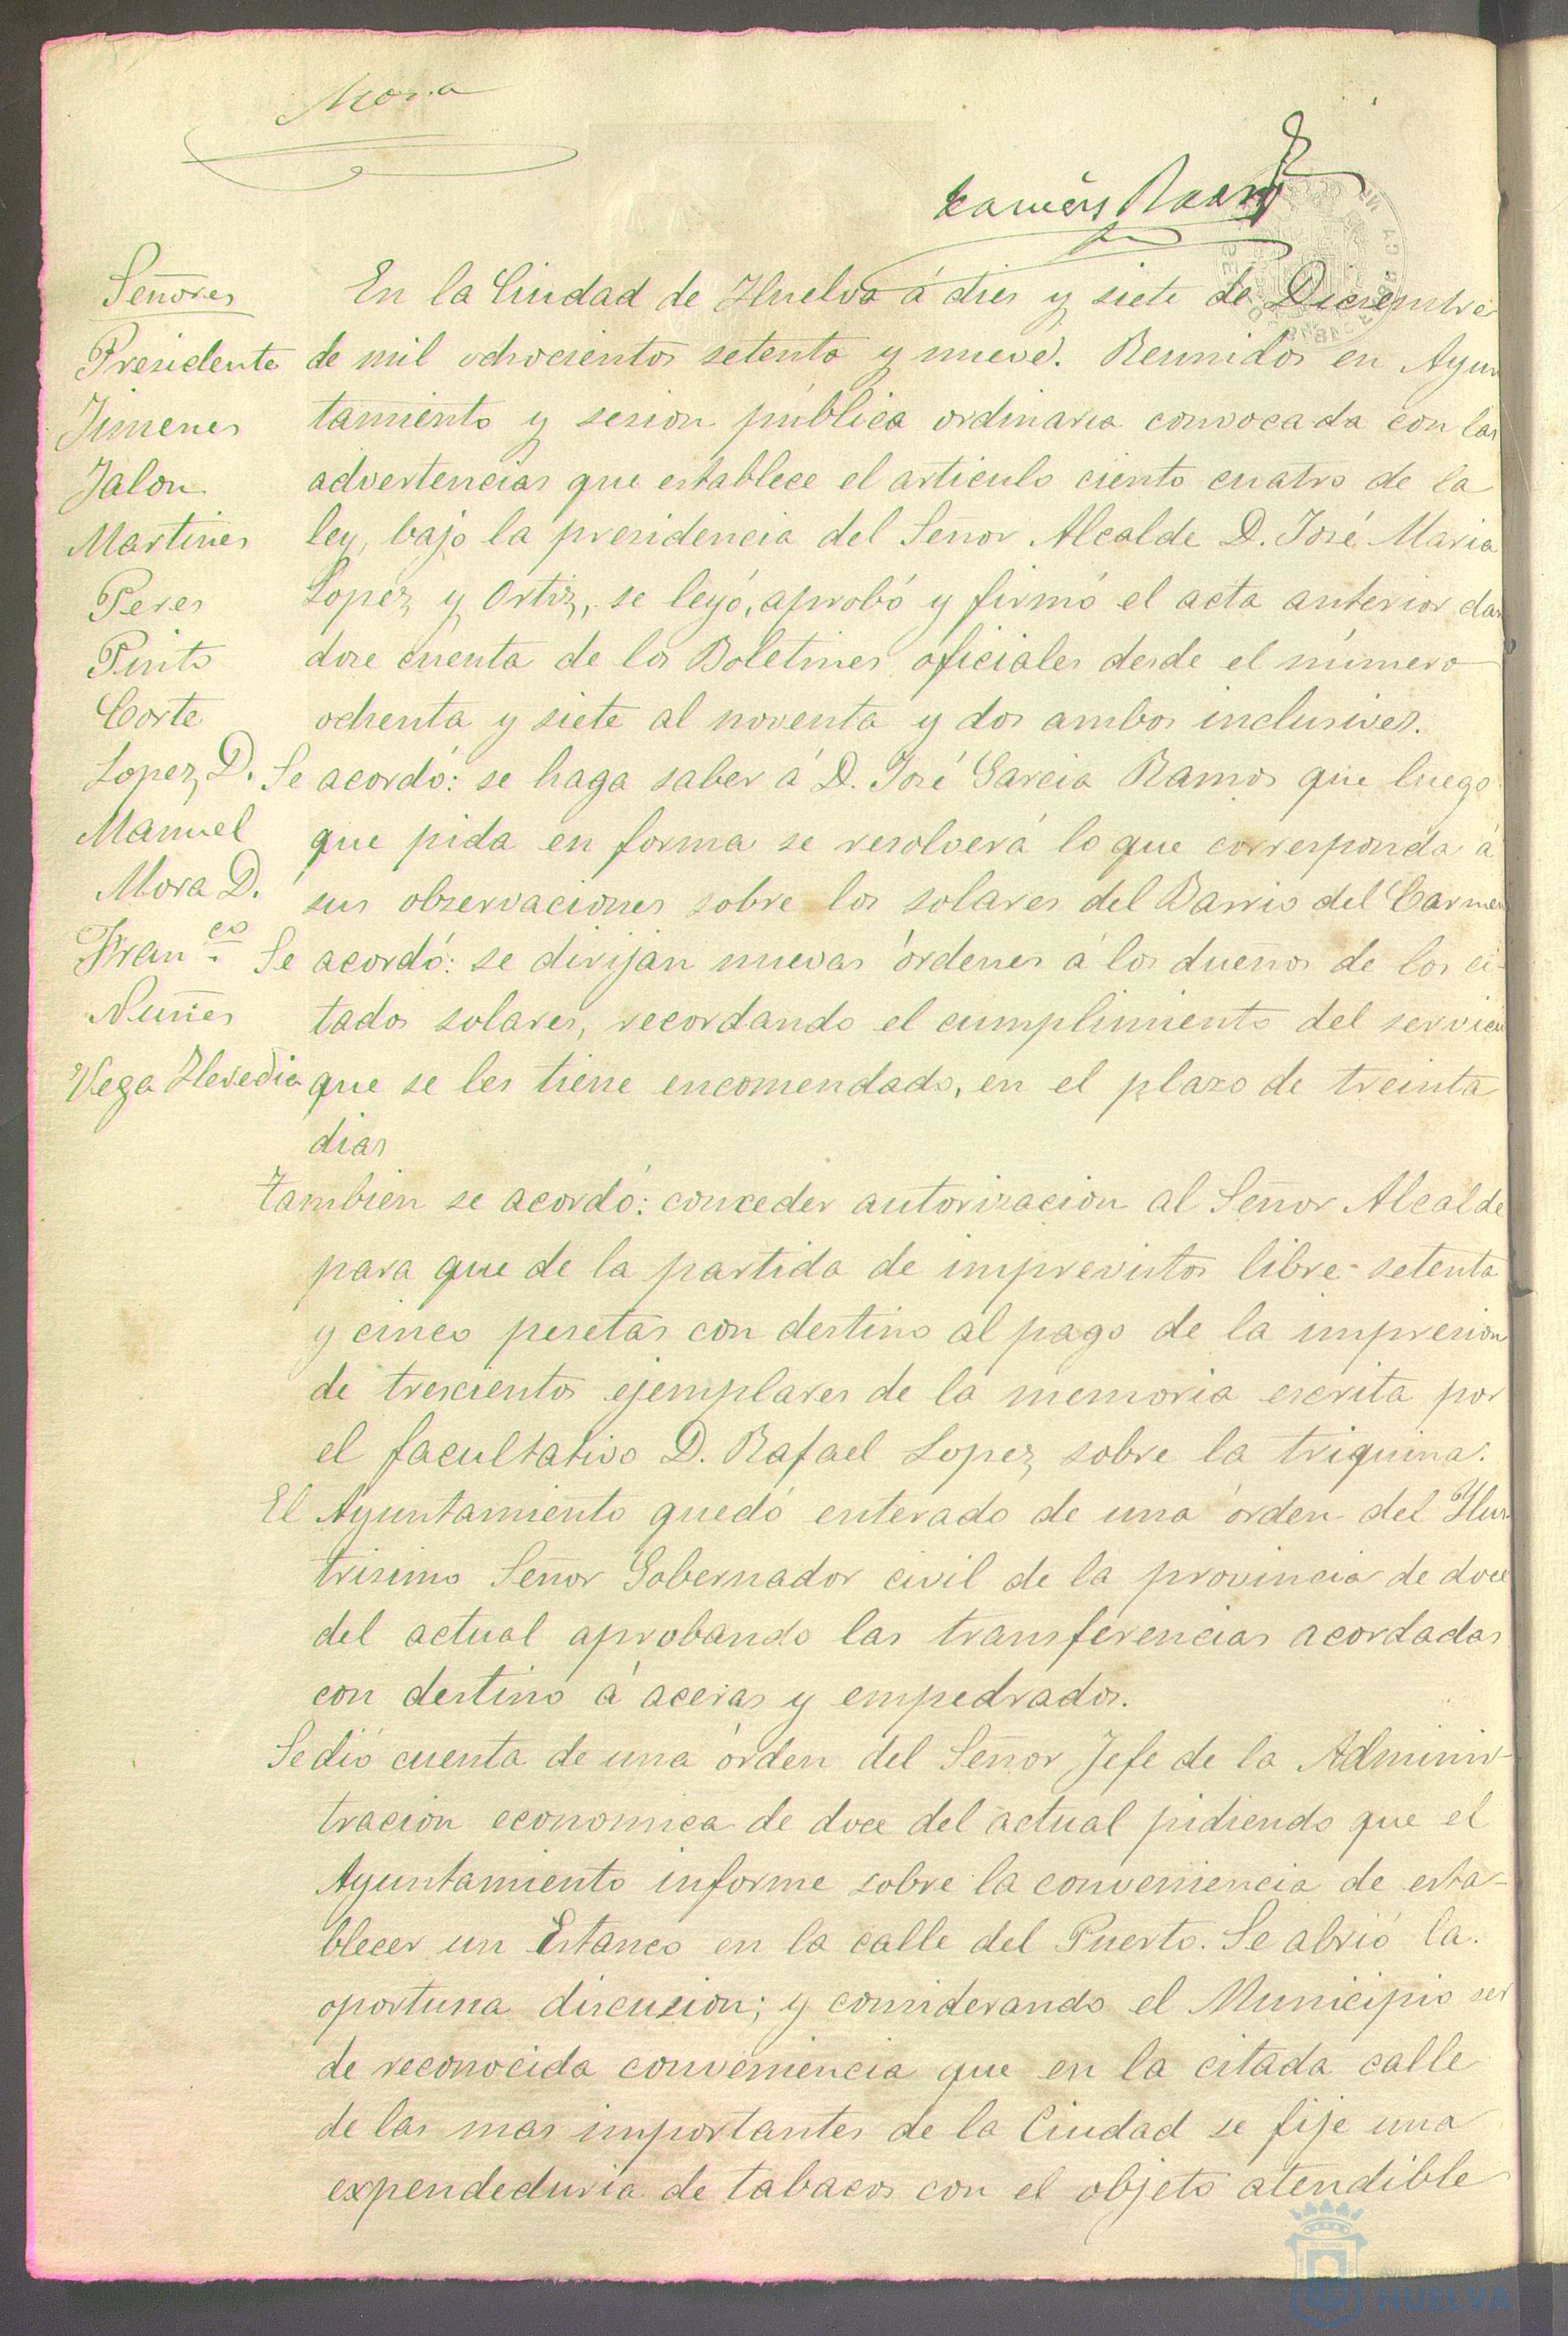 Mora
Señores
Presidente
Jimenes
Jalon
Martines
Peres
Pinto
Corte
Lopez D.
Manuel
Mora D.
Fran.co
Nuñes
Vega Heredia
En la Ciudad de Huelva á dies y siete de Diciembre
de mil ochocientos setenta y nueve. Reunidos en Ayun
tamiento y sesion pública ordinaria convocada con las
advertencias que establece el articulo ciento cuatro de la
ley, bajo la presidencia del Señor Alcalde D. José Maria
Lopez y Ortiz, se leyó, aprobó y firmó el acta anterior dan
dose cuenta de los Boletines oficiales desde el número
ochenta y siete al noventa y dos ambos inclusives.
Se acordó: se haga saber á D. José Garcia Ramos que luego
que pida en forma se resolverá lo que corresponda á
sus observaciones sobre los solares del Barrio del Carmen
Se acordó: se dirijan nuevas órdenes á los dueños de los ci-
tados solares, recordando el cumplimiento del servicio
que se les tiene encomendado, en el plazo de treinta
dias
Tambien se acordó: conceder autorizacion al Señor Alcalde
para que de la partida de imprevistos libre setenta
y cinco pesetas con destino al pago de la impresion
de trescientos ejemplares de la memoria escrita por
el facultativo D. Rafael Lopez sobre la triquina.
El Ayuntamiento quedó enterado de una órden del Ilus
trisimo Señor Gobernador civil de la provincia de doce
del actual aprobando las transferencias acordadas
con destino á aceras y empedrados.
Se dió cuenta de una órden del Señor Jefe de la Adminis-
tracion economica de doce del actual pidiendo que el
Ayuntamiento informe sobre la conveniencia de esta-
blecer un Estanco en la calle del Puerto. Se abrió la
oportuna discusion; y considerando el Municipio ser
de reconocida conveniencia que en la citada calle
de las mas importantes de la Ciudad se fije una
expendeduria de tabacos con el objeto atendible
HUELVA